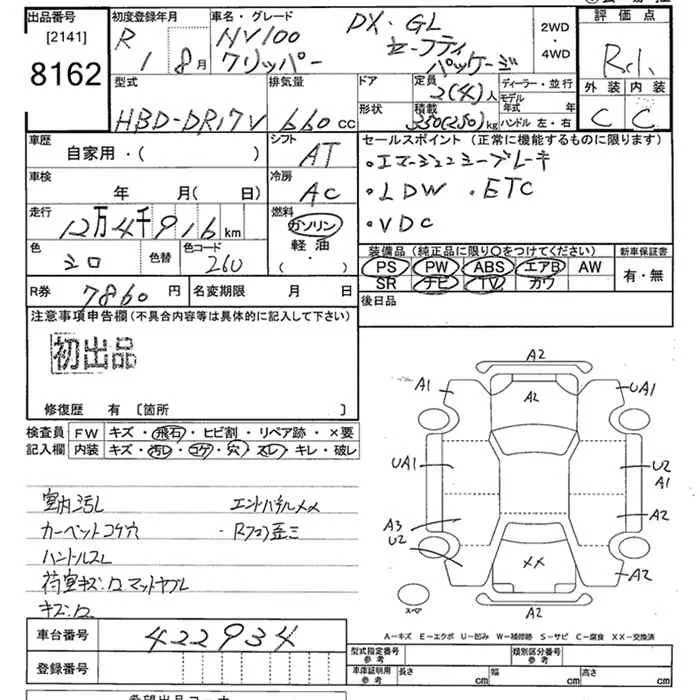 出品番号 初度登録年月 車名・グレード 評価点
[2141] R NV100 DX・GL 2WD
8162 1 8月 クリッパー セーフティパッケージ ・4WD R.1.
型式 排気量 ドア 定員 ディーラー・並行 外装 内装
HBD-DR17V 660cc 2(4)人 モデル年式 年 C C
形状 積載 350(250)kg ハンドル 左・右
車歴 シフト セールスポイント (正常に機能するものに限ります)
自家用・( ) AT ・エマージェンシーブレーキ
車検 冷房 ・LDW ・ETC
年 月( 日) AC ・VDC
走行 燃料
12万4千916km ガソリン
軽油
( ・ )
色 色替 色コード 装備品 (純正品に限り○をつけてください) 新車保証書
シロ 260 PS PW ABS エアB AW 有・無
SR ナビ TV カワ
R券 7860円 名変期限 月 日 後日品
注意事項申告欄(不具合内容等は具体的に記入して下さい)
初出品
修復歴 有 [箇所 ]
検査員 FW キズ・飛石・ヒビ割・リペア跡・×要
記入欄 内装 キズ・汚レ・コゲ・穴・スレ・キレ・破レ
室内汚レ エンドパネルメメ
カーペットコゲ穴 ・Rフロア歪ミ
ハンドルスレ
荷室キズ・凹 マットヤブレ
キズ・凹
A2
A1 A2 UA1
UA1 U2 A1
A3 U2 A2
XX A2
スペア A2
A-キズ E-エクボ U-凹み W-補修跡 S-サビ C-腐食 XX-交換済
車台番号 422934
登録番号
型式指定番号 参考 類別区分番号 参考
車庫証明用 参考 長さ cm 幅 cm 高さ cm
希望出品コーナ